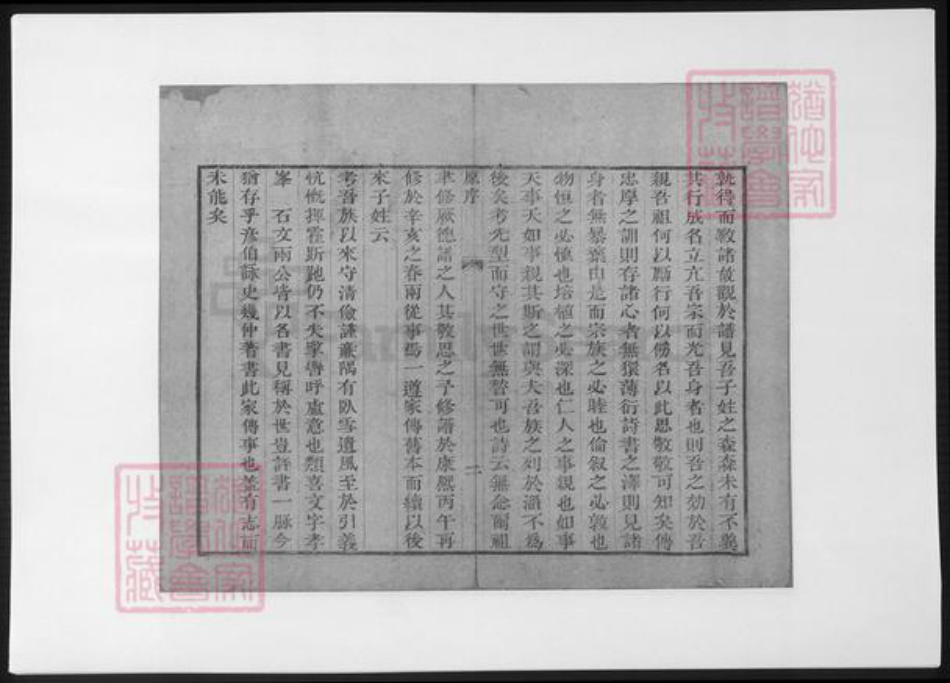 孰得而斁諸故觀於譜見吾子姓之森森未有不冀
其行成名立亢吾宗而光吾身者也則吾之効於吾
親吾祖何以厲行何以勝名以此思敬敬可知矣傳
忠孝之訓則存諸心者無獧薄衍詩書之澤則見諸
身者無暴棄由是而宗族之必睦也倫叙之必敦也
物恒之必慎也培植之必深也仁人之事親也如事
天事天如事親其斯之謂與夫吾族之列於淄不爲
後矣考先型而守之世世無替可也詩云無念爾祖
原序
二
聿修厥德譜之人其敬思之予修譜於康熙丙午再
修於辛亥之春兩從事焉一遵家傳舊本而續以後
來子姓云
考吾族以來守清儉謹廉隅有臥雪遺風至於引義
忼慨揮霍斯跑仍不失擊轡呼盧意也類喜文字孝
峯 石文兩公皆以名書見稱於世豈詩書一脉今
猶存乎彥伯詠史幾仲著書此家傳事也蓋有志而
未能矣
譜學會
收藏
猶他家
譜學會
收藏
猶他家